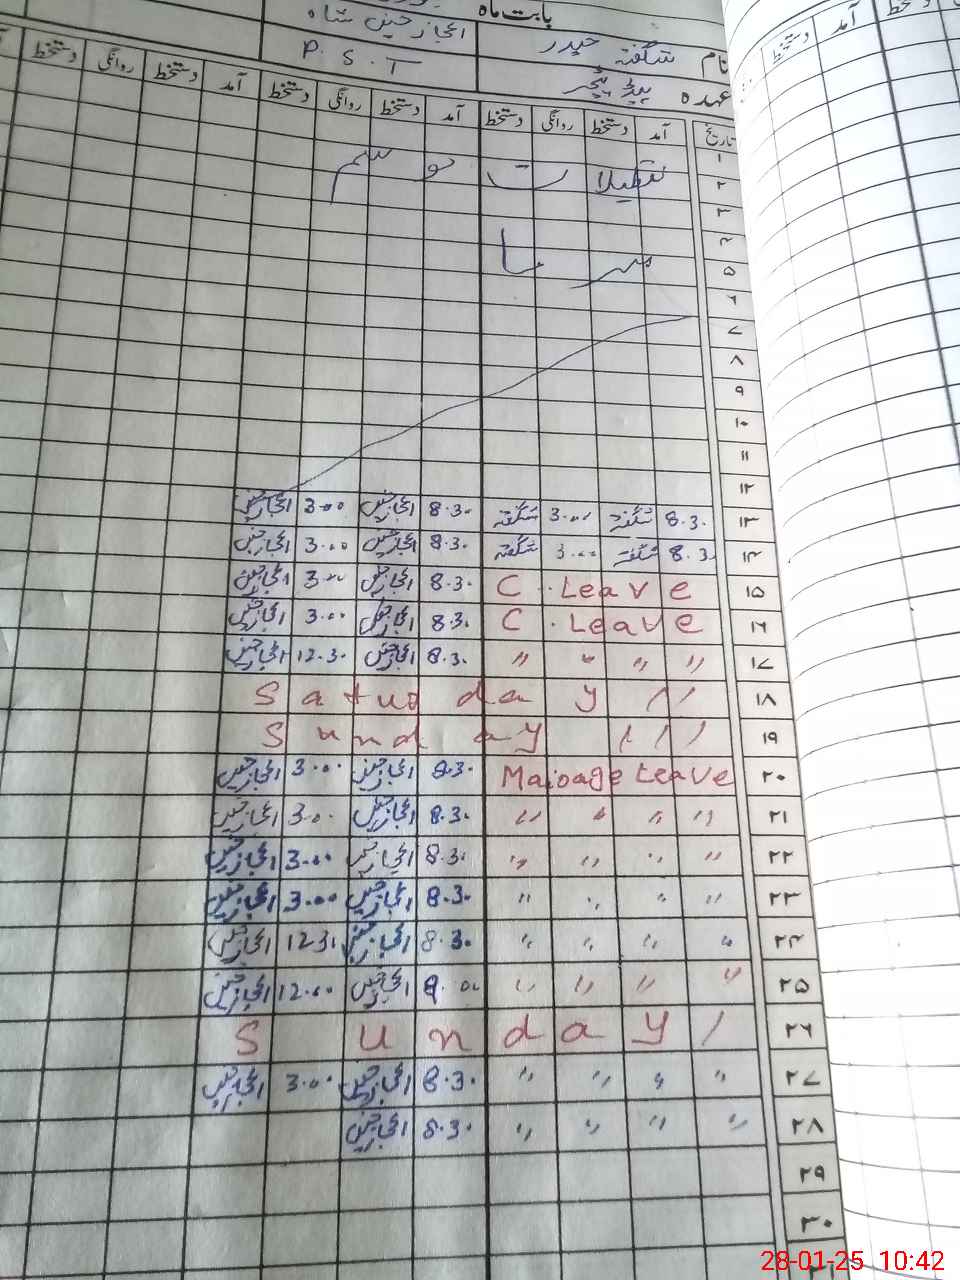 بابت ماہ
نام شگفتہ حیدر اعجاز حسین شاہ
عہدہ ہیڈ ٹیچر P.S.T
تاریخ آمد دستخط روانگی دستخط آمد دستخط روانگی دستخط آمد دستخط روانگی دستخط
۱
۲ تعطیلات موسم
۳
۴
۵ سرما
۶
۷
۸
۹
۱۰
۱۱
۱۲
۱۳ 8.30 شگفتہ 3.00 شگفتہ 8.30 اعجاز حسین 3.00 اعجاز حسین
۱۴ 8.30 شگفتہ 3.00 شگفتہ 8.30 اعجاز حسین 3.00 اعجاز حسین
۱۵ C. Leave 8.30 اعجاز حسین 3.00 اعجاز حسین
۱۶ C. Leave 8.30 اعجاز حسین 3.00 اعجاز حسین
۱۷ " " " " 8.30 اعجاز حسین 12.30 اعجاز حسین
۱۸ Saturday //
۱۹ Sunday ///
۲۰ Mairage Leave 8.30 اعجاز حسین 3.00 اعجاز حسین
۲۱ " " " " 8.30 اعجاز حسین 3.00 اعجاز حسین
۲۲ " " " " 8.30 اعجاز حسین 3.00 اعجاز حسین
۲۳ " " " " 8.30 اعجاز حسین 3.00 اعجاز حسین
۲۴ " " " " 8.30 اعجاز حسین 12.30 اعجاز حسین
۲۵ " " " " اعجاز حسین 12.00 اعجاز حسین
۲۶ Sunday /
۲۷ " " " " 8.30 اعجاز حسین 3.00 اعجاز حسین
۲۸ " " " " 8.30 اعجاز حسین
۲۹
۳۰
28-01-25 10:42